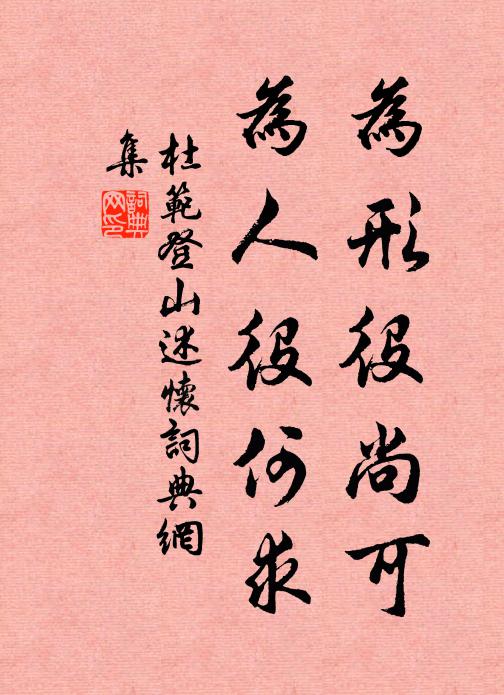 為形役尚可
為人役何求
杜範登山述懷詞典網
集
詞典
网印